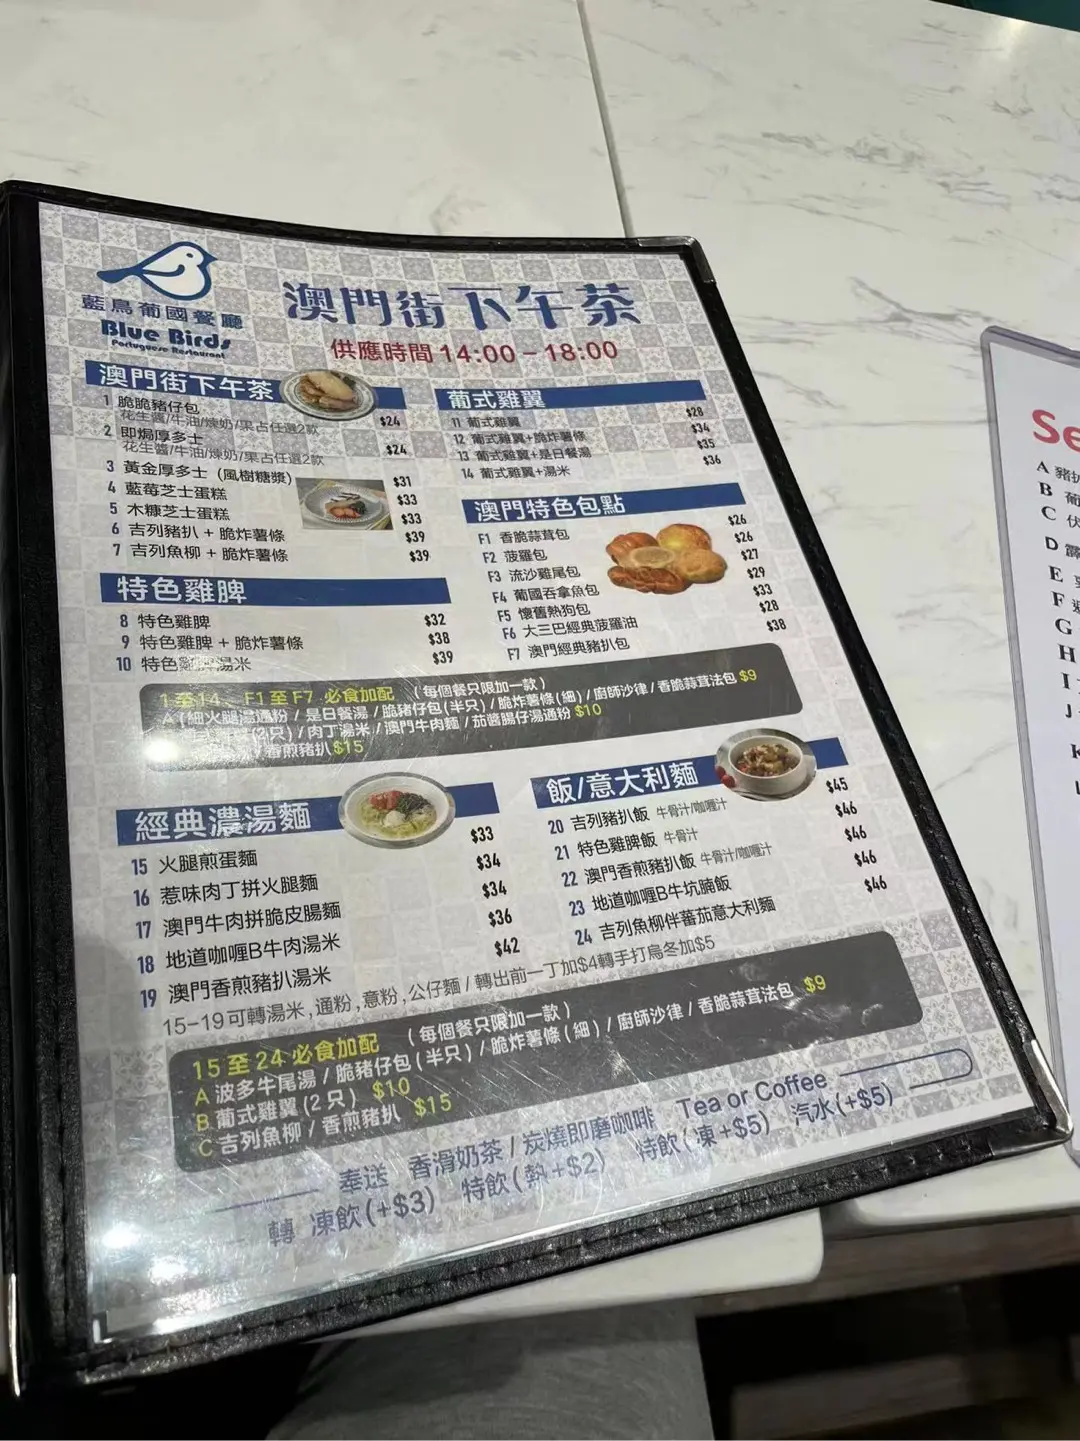 藍鳥葡國餐廳
Blue Birds
Portuguese Restaurant
澳門街下午茶
供應時間 14:00 - 18:00
澳門街下午茶
1 脆脆豬仔包 $24
花生醬/牛油/煉奶/果占任選2款
2 即焗厚多士 $24
花生醬/牛油/煉奶/果占任選2款
3 黃金厚多士 (風樹糖漿) $31
4 藍莓芝士蛋糕 $33
5 木糠芝士蛋糕 $33
6 吉列豬扒 + 脆炸薯條 $39
7 吉列魚柳 + 脆炸薯條 $39
特色雞脾
8 特色雞脾 $32
9 特色雞脾 + 脆炸薯條 $38
10 特色雞脾湯米 $39
葡式雞翼
11 葡式雞翼 $28
12 葡式雞翼+脆炸薯條 $34
13 葡式雞翼+是日餐湯 $35
14 葡式雞翼+湯米 $36
澳門特色包點
F1 香脆蒜茸包 $26
F2 菠羅包 $26
F3 流沙雞尾包 $27
F4 葡國吞拿魚包 $29
F5 懷舊熱狗包 $33
F6 大三巴經典菠羅油 $28
F7 澳門經典豬扒包 $38
1 至14、F1至 F7 必食加配 (每個餐只限加一款)
A (細火腿湯通粉 / 是日餐湯 / 脆豬仔包(半只) / 脆炸薯條(細) / 廚師沙律 / 香脆蒜茸法包 $9
(2只) / 肉丁湯米 / 澳門牛肉麵 / 茄醬腸仔湯通粉 $10
香煎豬扒 $15
經典濃湯麵
15 火腿煎蛋麵 $33
16 惹味肉丁拼火腿麵 $34
17 澳門牛肉拼脆皮腸麵 $34
18 地道咖喱B牛肉湯米 $36
19 澳門香煎豬扒湯米 $42
飯/意大利麵
20 吉列豬扒飯 牛骨汁/咖喱汁 $45
21 特色雞脾飯 牛骨汁 $46
22 澳門香煎豬扒飯 牛骨汁/咖喱汁 $46
23 地道咖喱B牛坑腩飯 $46
24 吉列魚柳伴蕃茄意大利麵 $46
15-19可轉湯米,通粉,意粉,公仔麵 / 轉出前一丁加$4轉手打烏冬加$5
15 至 24 必食加配 (每個餐只限加一款)
A 波多牛尾湯 / 脆豬仔包(半只) / 脆炸薯條(細) / 廚師沙律 / 香脆蒜茸法包 $9
B 葡式雞翼(2只) $10
C 吉列魚柳 / 香煎豬扒 $15
奉送 香滑奶茶 / 炭燒即磨咖啡 Tea or Coffee
轉 凍飲(+$3) 特飲(熱+$2) 特飲(凍+$5) 汽水(+$5)
Se
A 豬扒
B 葡
C 伏
D 霹
E
F
G
H
I
J
K
L